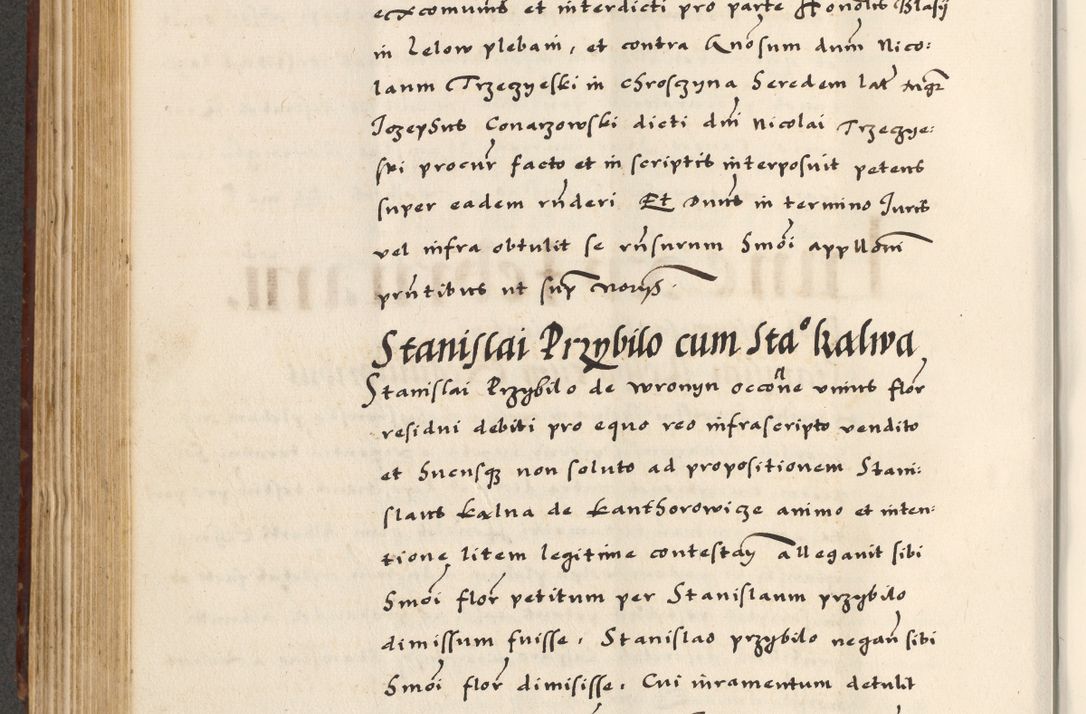 excomunis et interdicti pro parte Honolis Blasij
in Lelow plebani, et contra Gnosum dum Nico:
laum Trzeczyeski in chrosczyna heredem lat
Jozephus Conarzowski dicti dni Nicolai Trzeczye:
ski procur facto et in scriptis interposuit petens
super eadem rnderi Et Dnus in termino Juris
vel infra obtulit se rnsurum hmoi appllom
prntibus ut sup
Stanislai Przybilo cum Sta° kalwa
Stanislai Przybilo de wronyn occone unius flor
residui debiti pro equo reo infrascripto vendito
et hucusq non soluto ad propositionem Stani:
slaus kalua de kanthorowicze animo et inten:
tione litem legitime contestan allegauit sibi
hmoi flor petitum per Stanislaum przybilo
dimissum fuisse. Stanislao przybilo negan sibi
hmoi flor dimisisse. Cui iuramentum detulit